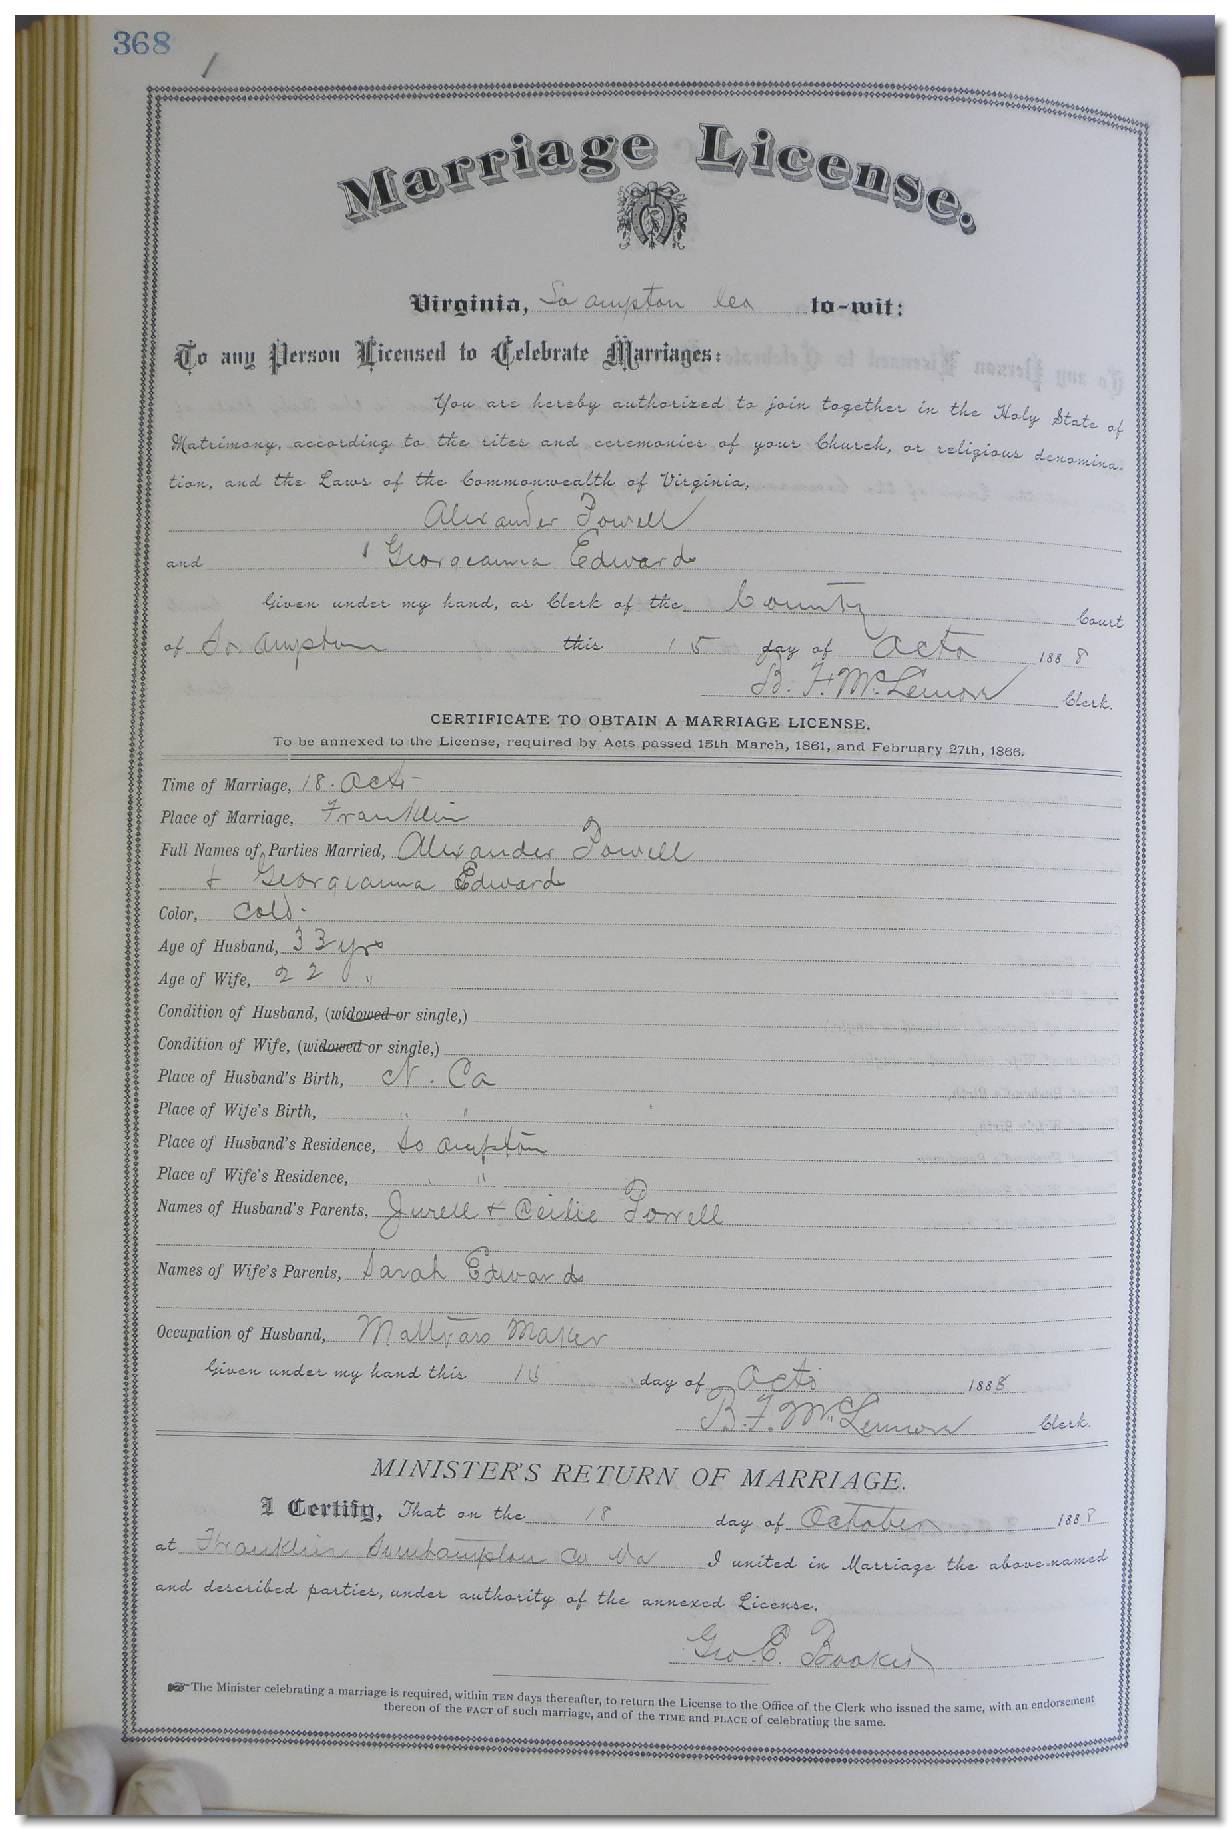 368
Marriage License.
Virginia, So ampton Co to-wit:
To any Person Licensed to Celebrate Marriages:
You are hereby authorized to join together in the Holy State of
Matrimony, according to the rites and ceremonies of your Church, or religious denomina-
tion, and the Laws of the Commonwealth of Virginia,
Alexander Powell
and Georgeanna Edwards
Given under my hand, as Clerk of the County Court
of So ampton this 15 day of Octo 1888
B. F. McLemore Clerk.
CERTIFICATE TO OBTAIN A MARRIAGE LICENSE.
To be annexed to the License, required by Acts passed 15th March, 1861, and February 27th, 1866.
Time of Marriage, 18. Octo
Place of Marriage, Franklin
Full Names of Parties Married, Alexander Powell
& Georgeanna Edwards
Color, Cold.
Age of Husband, 33 yrs
Age of Wife, 22 "
Condition of Husband, (widowed or single,)
Condition of Wife, (widowed or single,)
Place of Husband's Birth, N. Ca
Place of Wife's Birth, " "
Place of Husband's Residence, So ampton
Place of Wife's Residence, " "
Names of Husband's Parents, Jurell & Ceilie Powell
Names of Wife's Parents, Sarah Edwards
Occupation of Husband, Mattrass Maker
Given under my hand this 15 day of Octo 1888
B. F. McLemore Clerk.
MINISTER'S RETURN OF MARRIAGE.
I Certify, That on the 18 day of October 1888
at Franklin Southampton Co Va I united in Marriage the above-named
and described parties, under authority of the annexed License.
Geo. E. Booker
The Minister celebrating a marriage is required, within TEN days thereafter, to return the License to the Office of the Clerk who issued the same, with an endorsement
thereon of the FACT of such marriage, and of the TIME and PLACE of celebrating the same.